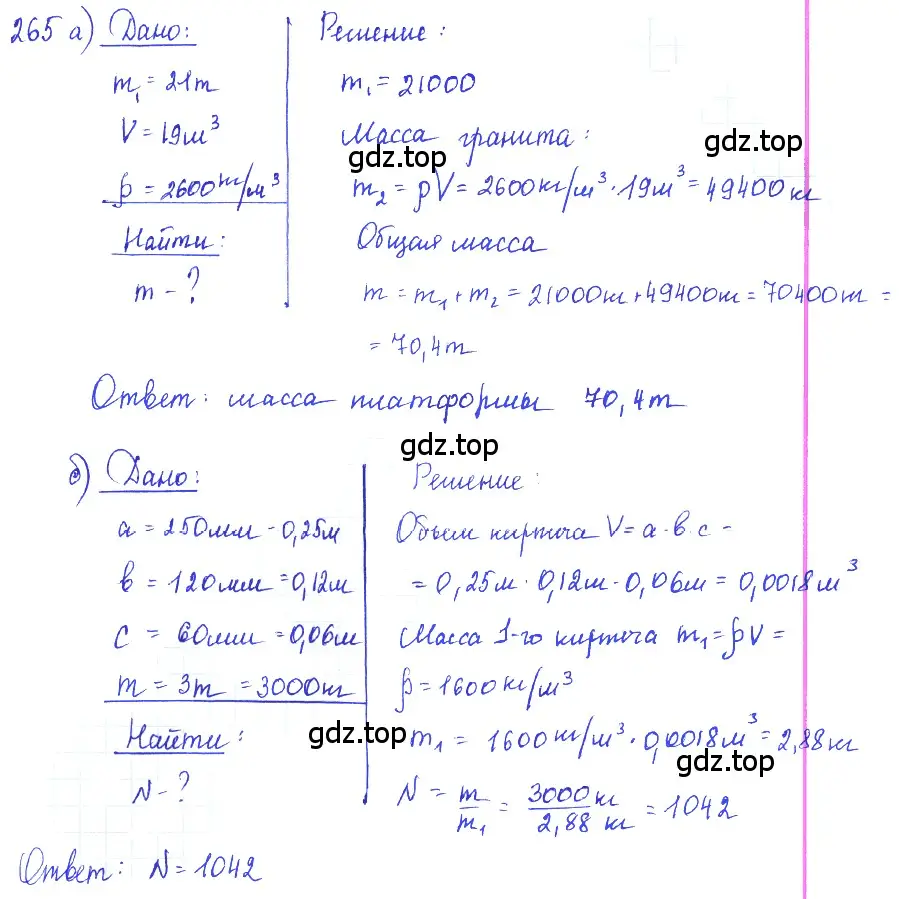 265 а) Дано:
m₁ = 21т
V = 19м³
ρ = 2600кг/м³
Найти:
m - ?
Решение:
m₁ = 21000
Масса гранита:
gdz.top
gdz.top
m₂ = ρV = 2600кг/м³ · 19м³ = 49400кг
Общая масса
m = m₁ + m₂ = 21000кг + 49400кг = 70400кг =
= 70,4т
Ответ: масса платформы 70,4т
gdz.top
б) Дано:
a = 250мм - 0,25м
в = 120мм = 0,12м
c = 60мм = 0,06м
m = 3т = 3000кг
Найти:
N - ?
Решение:
Объем кирпича V = a · в · c -
= 0,25м · 0,12м · 0,06м = 0,0018м³
Масса 1-го кирпича m₁ = ρV =
ρ = 1600кг/м³
gdz.top
m₁ = 1600кг/м³ · 0,0018м³ = 2,88кг
gdz.top
N = m/m₁ = 3000кг/2,88 кг = 1042
Ответ: N = 1042